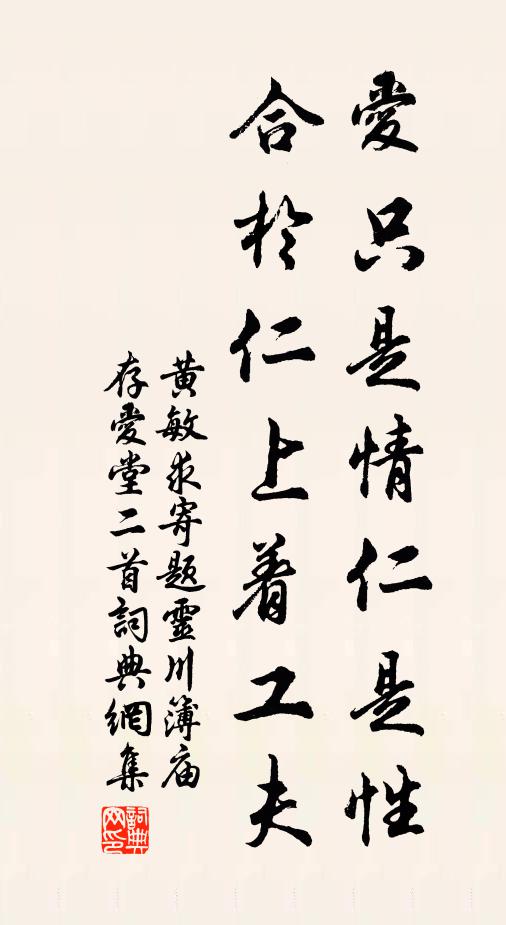 愛只是情仁是性
合於仁上着工夫
黄敏求寄題靈川簿庙
存愛堂二首詞典網集
詞典網印